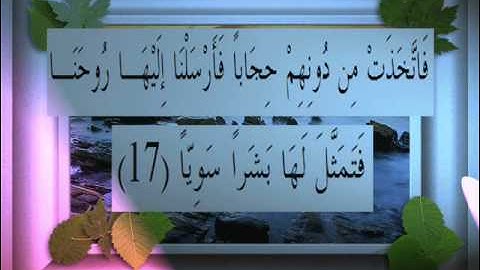 فَاتَّخَذَتْ مِن دُونِهِمْ حِجَاباً فَأَرْسَلْنَا إِلَيْهَــا رُوحَنَــا
فَتَمَثَّلَ لَهَا بَشَراً سَوِيّاً (17)